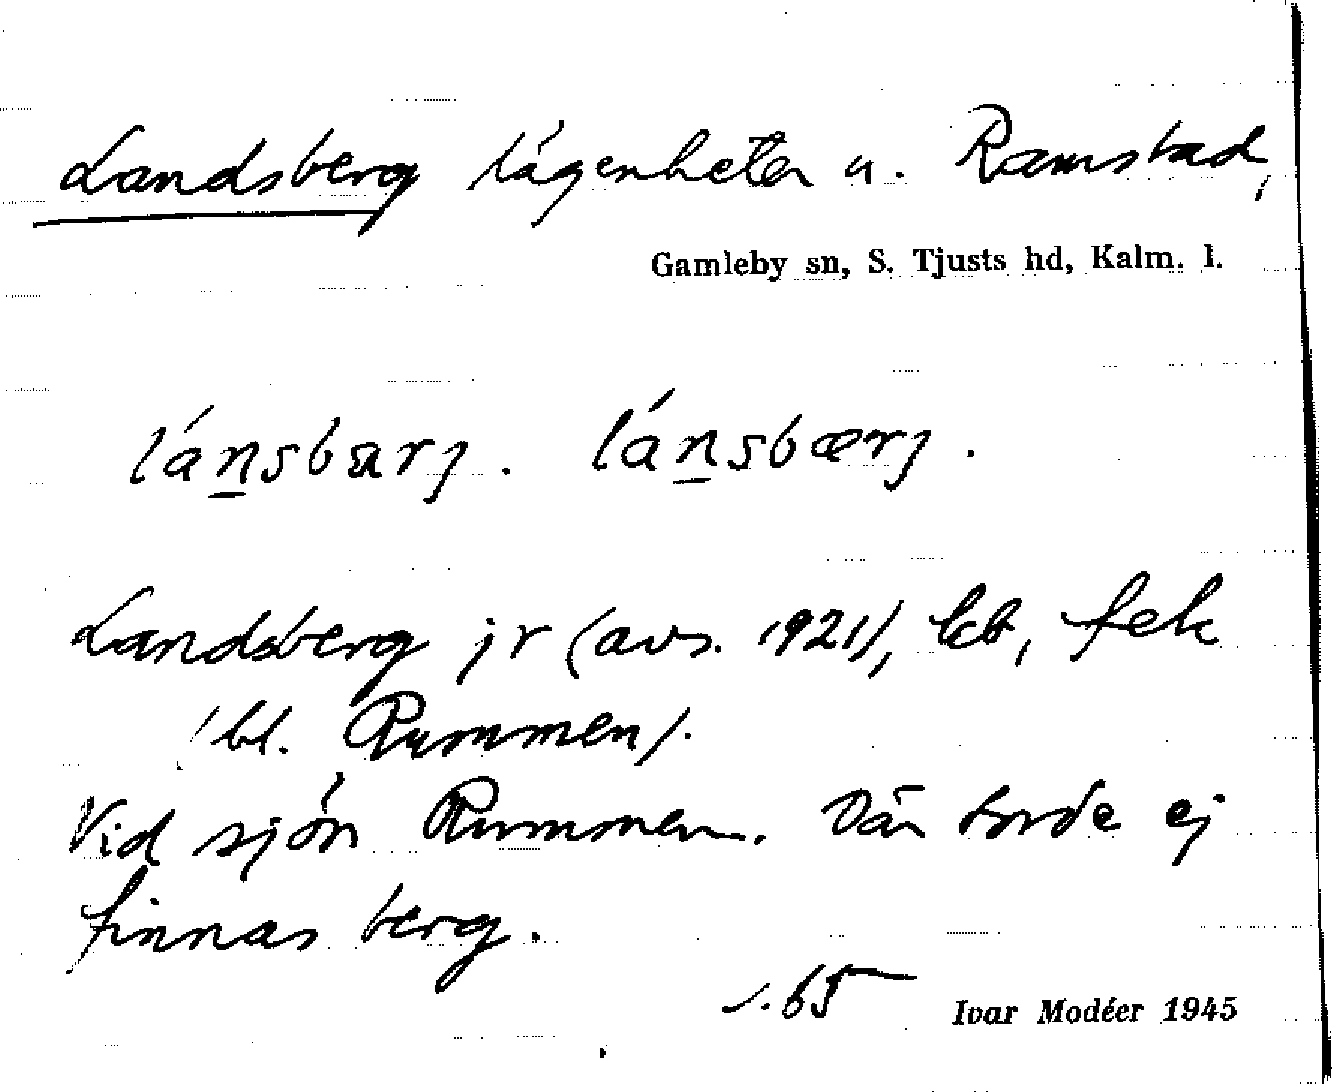 Landsberg lägenheter u. Ramstad,
Gamleby sn, S. Tjusts hd, Kalm. l.
lánsbarj. lánsbærj.
Landsberg jr (avs. 1921), kb, fek
(bl. Rummen).
Vid sjön Rummen. Där torde ej
finnas berg.
s. 65
Ivar Modéer 1945